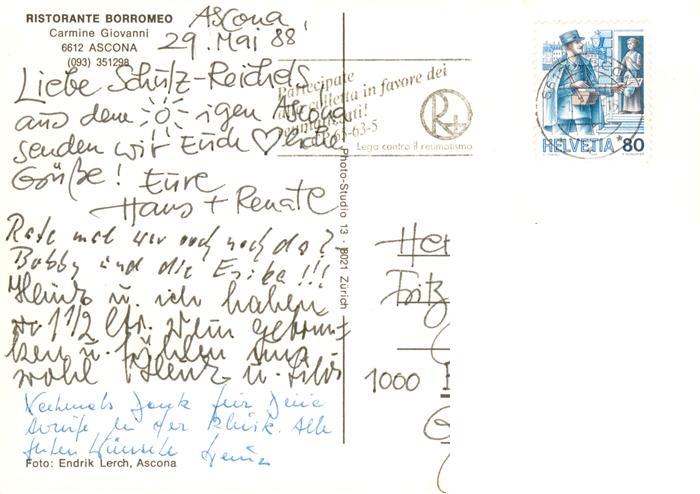 RISTORANTE BORROMEO
Carmine Giovanni
6612 ASCONA
(093) 351298
Ascona,
29. Mai 88
Liebe Schütz-Reichels
aus dem igen Ascona
senden wir Euch ♡liche
Grüße! Eure
Hans + Renate
Rate mal wer noch da?
Bobby und die Erika!!!
Heinz u. ich haben
1 1/2 Ltr. Wein getrunken
u. fühlen uns
wohl Heinz u.
Nochmals Dank für Deine
in der Klinik. Alle
guten Wünsche
Foto: Endrik Lerch, Ascona
Photo-Studio 13 · 8021 Zürich
Partecipate
alla colletta in favore dei
reumatizzati!
65-63-5
R+
Lega contro il reumatismo
HELVETIA 80
Her
Fritz
1000